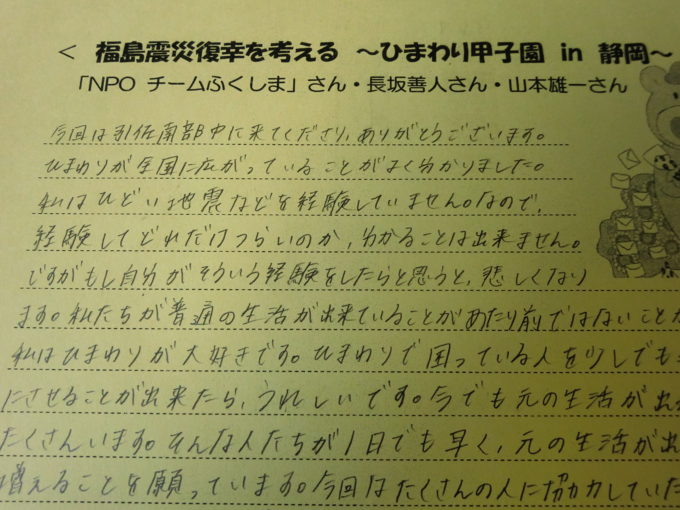 < 福島震災復幸を考える ～ひまわり甲子園 in 静岡～
「NPO チームふくしま」さん・長坂善人さん・山本雄一さん
今回は引佐南部中に来てくださり、ありがとうございます。
ひまわりが全国に広がっていることがよく分かりました。
私はひどい地震などを経験していません。なので、
経験してどれだけつらいのか、分かることは出来ません。
ですがもし自分がそういう経験をしたらと思うと、悲しくなり
ます。私たちが普通の生活が出来ていることがあたり前ではないことか
私はひまわりが大好きです。ひまわりで困っている人を少しでも
にさせることが出来たら、うれしいです。今でも元の生活が出
たくさんいます。そんな人たちが1日でも早く、元の生活が出
増えることを願っています。今回はたくさんの人に協力していた